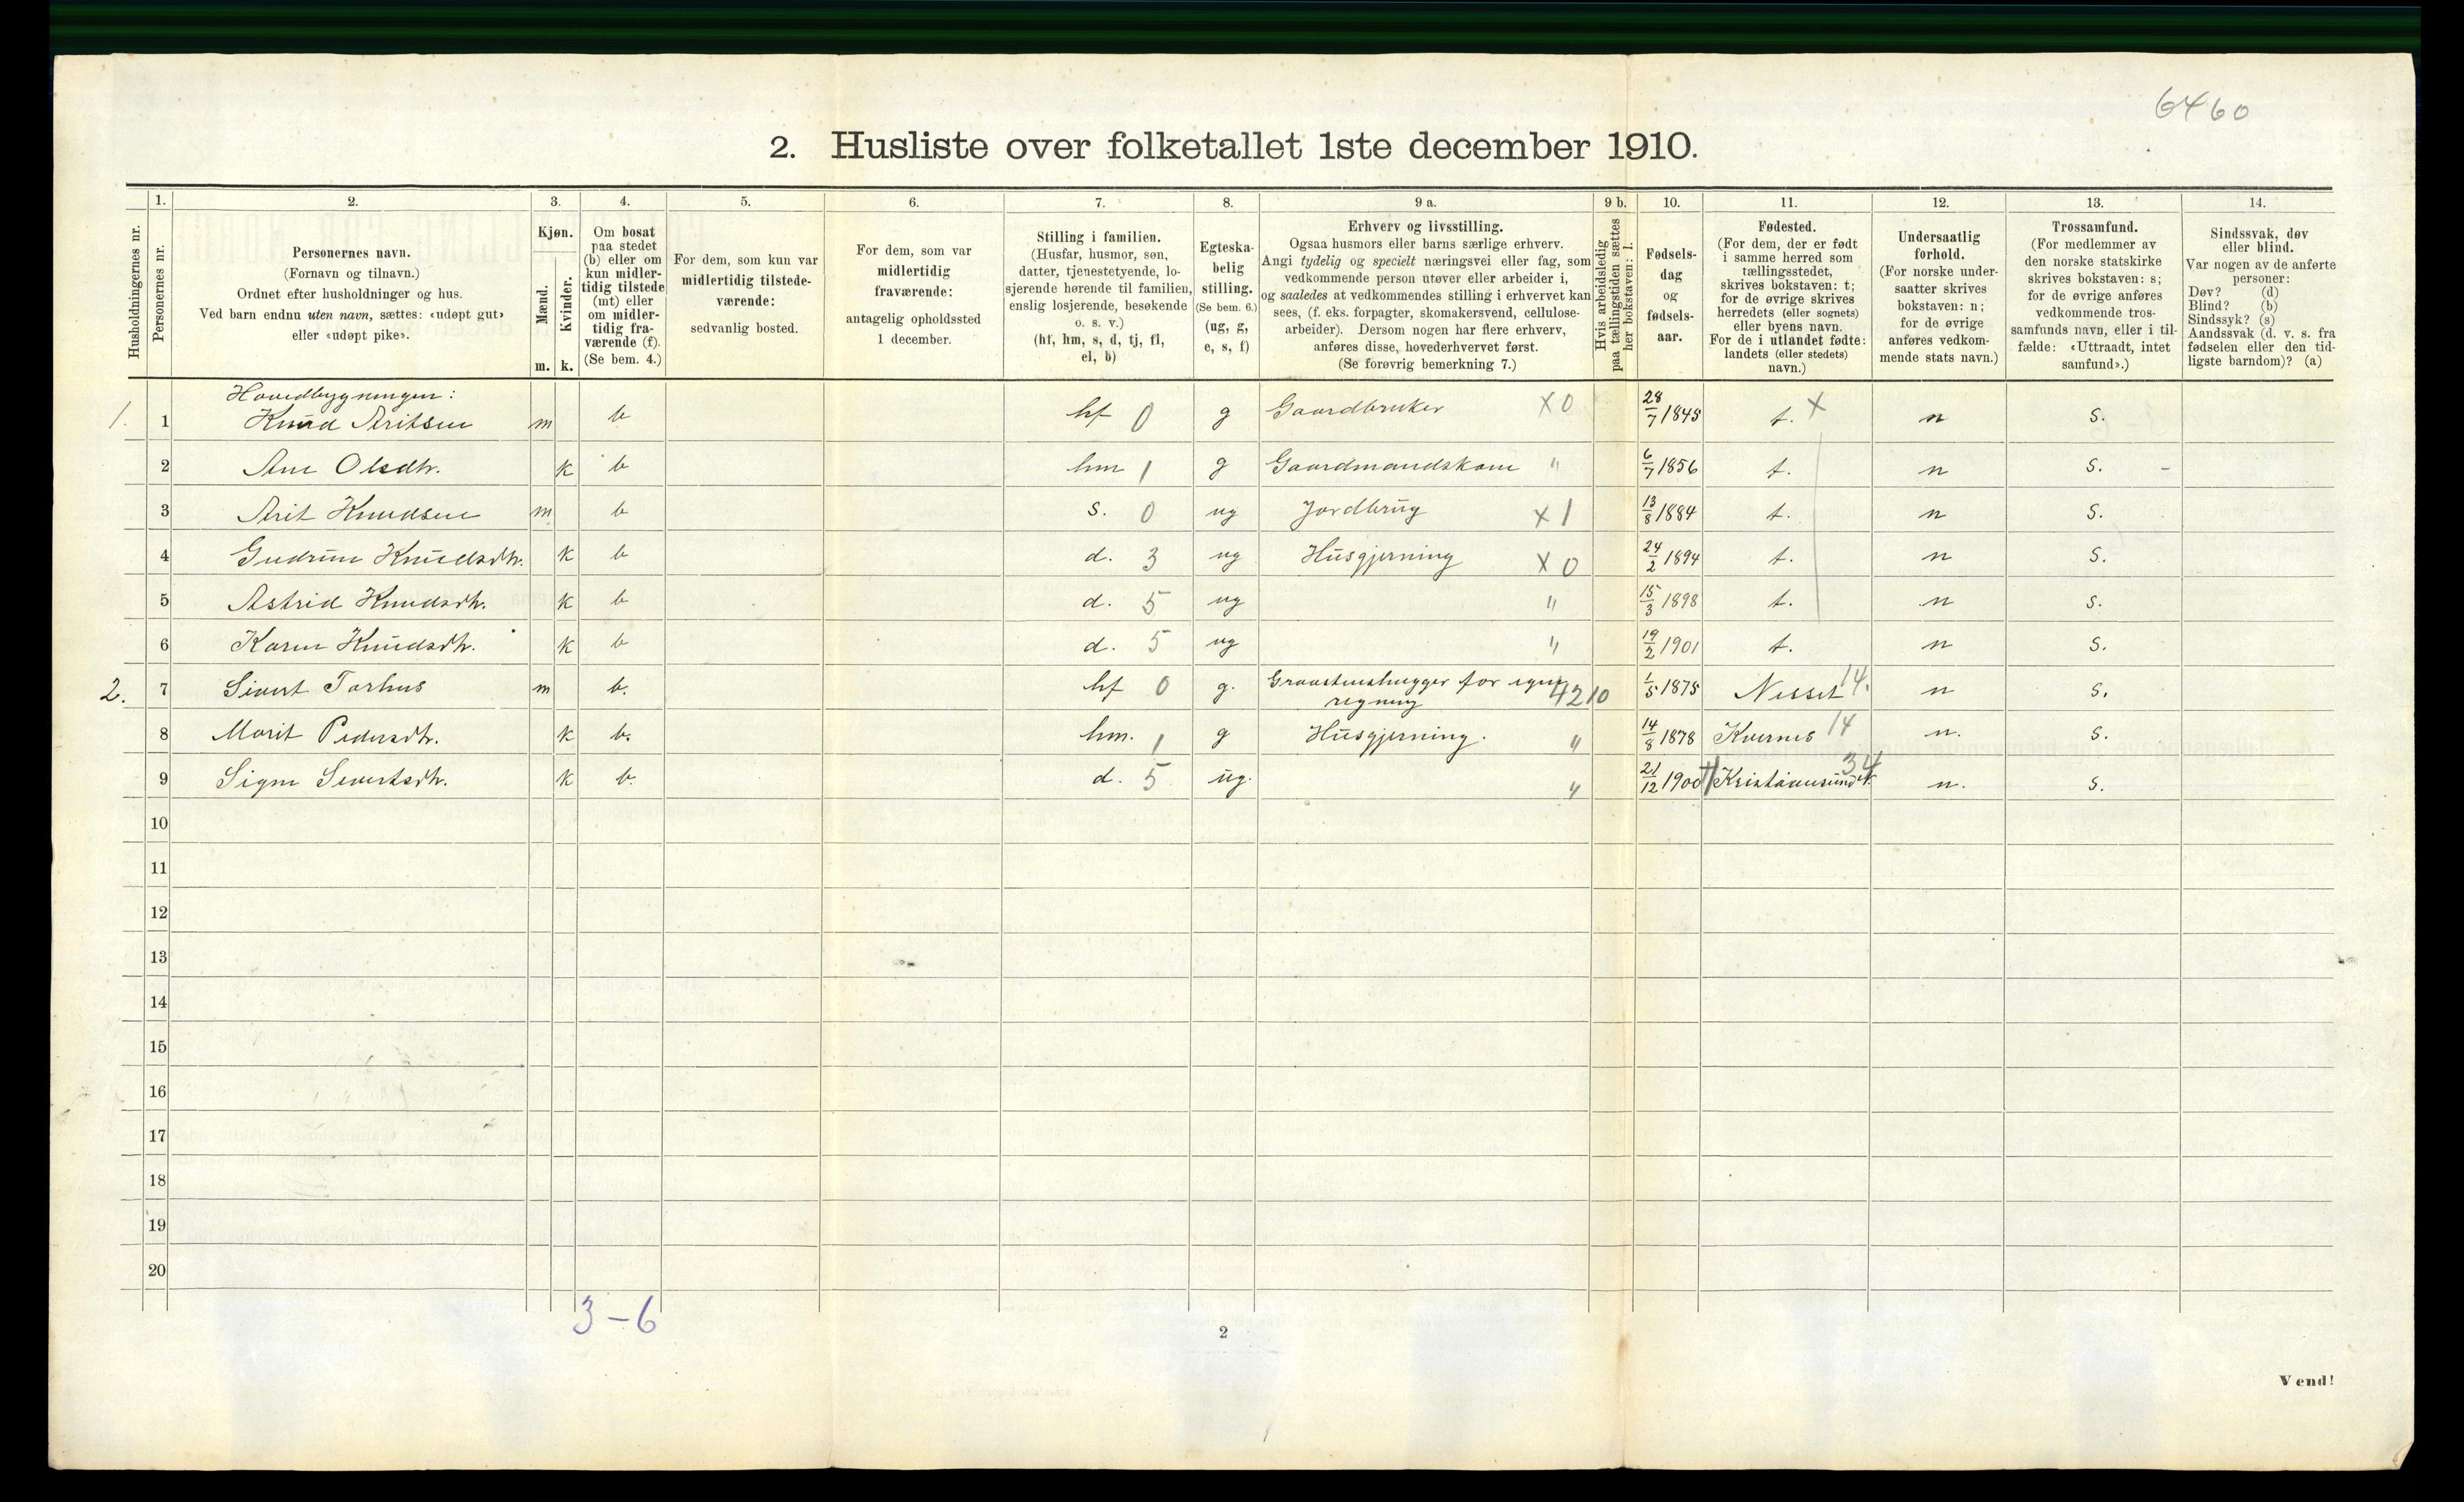 6460
2. Husliste over folketallet 1ste december 1910.
Husholdningernes nr.
1.
Personernes nr.
2.
Personernes navn.
(Fornavn og tilnavn.)
Ordnet efter husholdninger og hus.
Ved barn endnu uten navn, sættes: «udøpt gut»
eller «udøpt pike».
3.
Kjøn.
Mænd.
Kvinder.
m. k.
4.
Om bosat
paa stedet
(b) eller om
kun midler-
tidig tilstede
(mt) eller
om midler-
tidig fra-
værende (f).
(Se bem. 4.)
5.
For dem, som kun var
midlertidig tilstede-
værende:
sedvanlig bosted.
6.
For dem, som var
midlertidig
fraværende:
antagelig opholdssted
1 december.
7.
Stilling i familien.
(Husfar, husmor, søn,
datter, tjenestetyende, lo-
sjerende hørende til familien,
enslig losjerende, besøkende
o. s. v.)
(hf, hm, s, d, tj, fl,
el, b)
8.
Egteska-
belig
stilling.
(Se bem. 6.)
(ug, g,
e, s, f)
9 a.
Erhverv og livsstilling.
Ogsaa husmors eller barns særlige erhverv.
Angi tydelig og specielt næringsvei eller fag, som
vedkommende person utøver eller arbeider i,
og saaledes at vedkommendes stilling i erhvervet kan
sees, (f. eks. forpagter, skomakersvend, cellulose-
arbeider). Dersom nogen har flere erhverv,
anføres disse, hovederhvervet først.
(Se forøvrig bemerkning 7.)
9 b.
Hvis arbeidsledig
paa tællingstiden sættes
her bokstaven: l.
10.
Fødsels-
dag
og
fødsels-
aar.
11.
Fødested.
(For dem, der er født
i samme herred som
tællingsstedet,
skrives bokstaven: t;
for de øvrige skrives
herredets (eller sognets)
eller byens navn.
For de i utlandet fødte:
landets (eller stedets)
navn.)
12.
Undersaatlig
forhold.
(For norske under-
saatter skrives
bokstaven: n;
for de øvrige
anføres vedkom-
mende stats navn.)
13.
Trossamfund.
(For medlemmer av
den norske statskirke
skrives bokstaven: s;
for de øvrige anføres
vedkommende tros-
samfunds navn, eller i til-
fælde: «Uttraadt, intet
samfund».)
14.
Sindssvak, døv
eller blind.
Var nogen av de anførte
personer:
Døv? (d)
Blind? (b)
Sindssyk? (s)
Aandssvak (d. v. s. fra
fødselen eller den tid-
ligste barndom)? (a)
Hovedbygningen:
1. 1 Knud Aritsen m b hf 0 g Gaardbruker X0 28/7 1845 t. X n s.
2 Ane Olsdtr. k b hm 1 g Gaardmandskone " 6/7 1856 t. n s. -
3 Arit Knudsen m b s. 0 ug Jordbrug X1 13/8 1884 t. n s.
4 Gudrun Knudsdtr. k b d. 3 ug Husgjerning X0 24/2 1894 t. n s.
5 Astrid Knudsdtr. k b d. 5 ug " 15/3 1898 t. n s.
6 Karen Knudsdtr. k b d. 5 ug " 19/2 1901 t. n s.
2. 7 Sivert Torhus m b. hf 0 g. Graastenshugger for egen regning 4210 1/5 1875 Nesset 14. n s.
8 Marit Pedersdtr. k b. hm. 1 g Husgjerning. " 14/8 1878 Kvernes 14 n. s.
9 Signe Sivertsdtr. k b. d. 5 ug. " 21/12 1900 Kristiansund N. 34 n. s.
10
11
12
13
14
15
16
17
18
19
20
3-6
2
Vend!